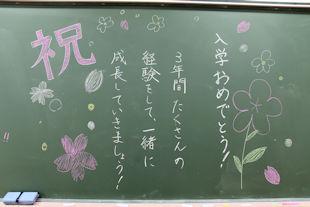 祝
入学おめでとう!
3年間 たくさんの
経験をして、一緒に
成長していきましょう!